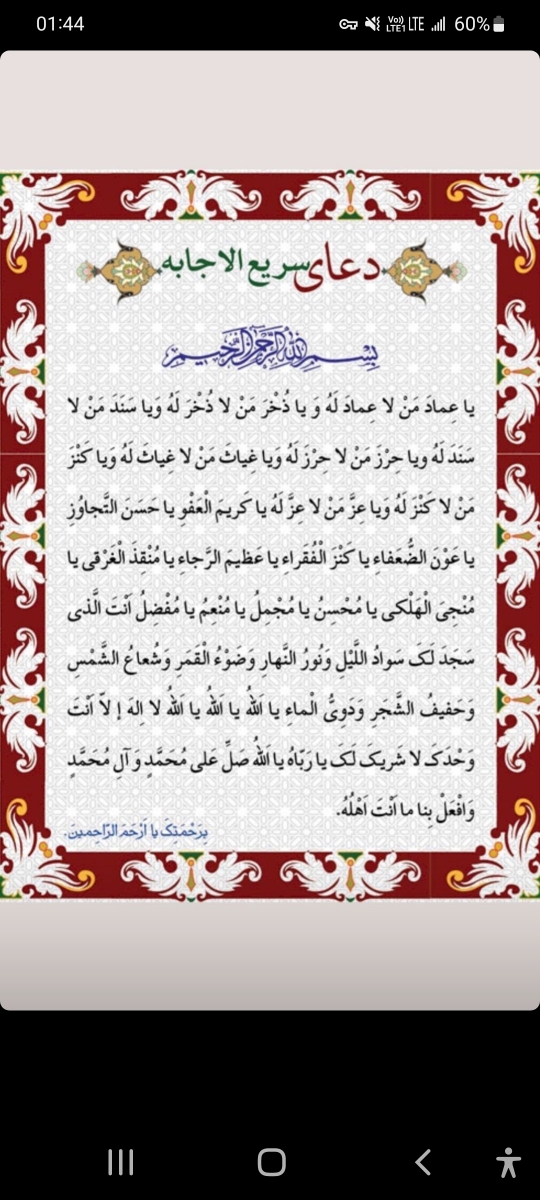 01:44
Vo)) LTE1 LTE 60%
دعای سریع الاجابه
بِسْمِ اللهِ الرَّحْمنِ الرَّحيمِ
یا عِمادَ مَنْ لا عِمادَ لَهُ وَ یا ذُخْرَ مَنْ لا ذُخْرَ لَهُ وَیا سَنَدَ مَنْ لا
سَنَدَ لَهُ ویا حِرْزَ مَنْ لا حِرْزَ لَهُ وَیا غِیاثَ مَنْ لا غِیاثَ لَهُ وَیا كَنْزَ
مَنْ لا كَنْزَ لَهُ وَیا عِزَّ مَنْ لا عِزَّ لَهُ یا كَریمَ الْعَفْوِ یا حَسَنَ التَّجاوُزِ
یا عَوْنَ الضُّعَفاءِ یا كَنْزَ الْفُقَراءِ یا عَظیمَ الرَّجاءِ یا مُنْقِذَ الْغَرْقی یا
مُنْجِیَ الْهَلْكی یا مُحْسِنُ یا مُجْمِلُ یا مُنْعِمُ یا مُفْضِلُ اَنْتَ الَّذی
سَجَدَ لَکَ سَوادُ اللَّیْلِ وَنُورُ النَّهارِ وَضَوْءُ الْقَمَرِ وَشُعاعُ الشَّمْسِ
وَحَفیفُ الشَّجَرِ وَدَوِیُّ الْماءِ یا اَللهُ یا اَللهُ یا اَللهُ لا اِلهَ إلاّ اَنْتَ
وَحْدَکَ لا شَریکَ لَکَ یا رَبّاهُ یا اَللهُ صَلِّ عَلی مُحَمَّدٍ وَ آلِ مُحَمَّدٍ
وَافْعَلْ بِنا ما اَنْتَ اَهْلُهُ.
بِرَحْمَتِکَ یا اَرْحَمَ الرّاحِمینَ.